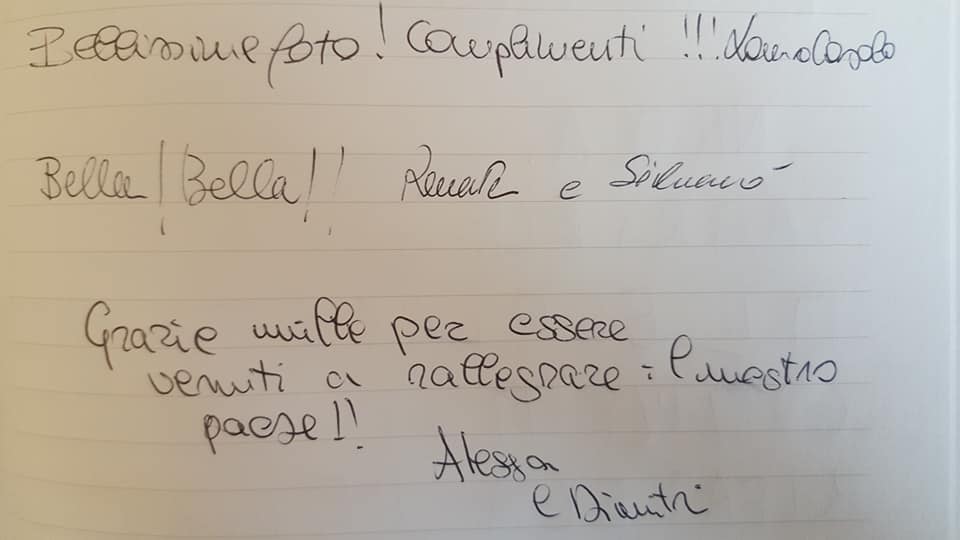 Bellissime foto! Complimenti !!!
Bella! Bella!! Renata e Silvano
Grazie mille per essere
venuti a rallegrare il nostro
paese!!
Alessia
e Dimitri